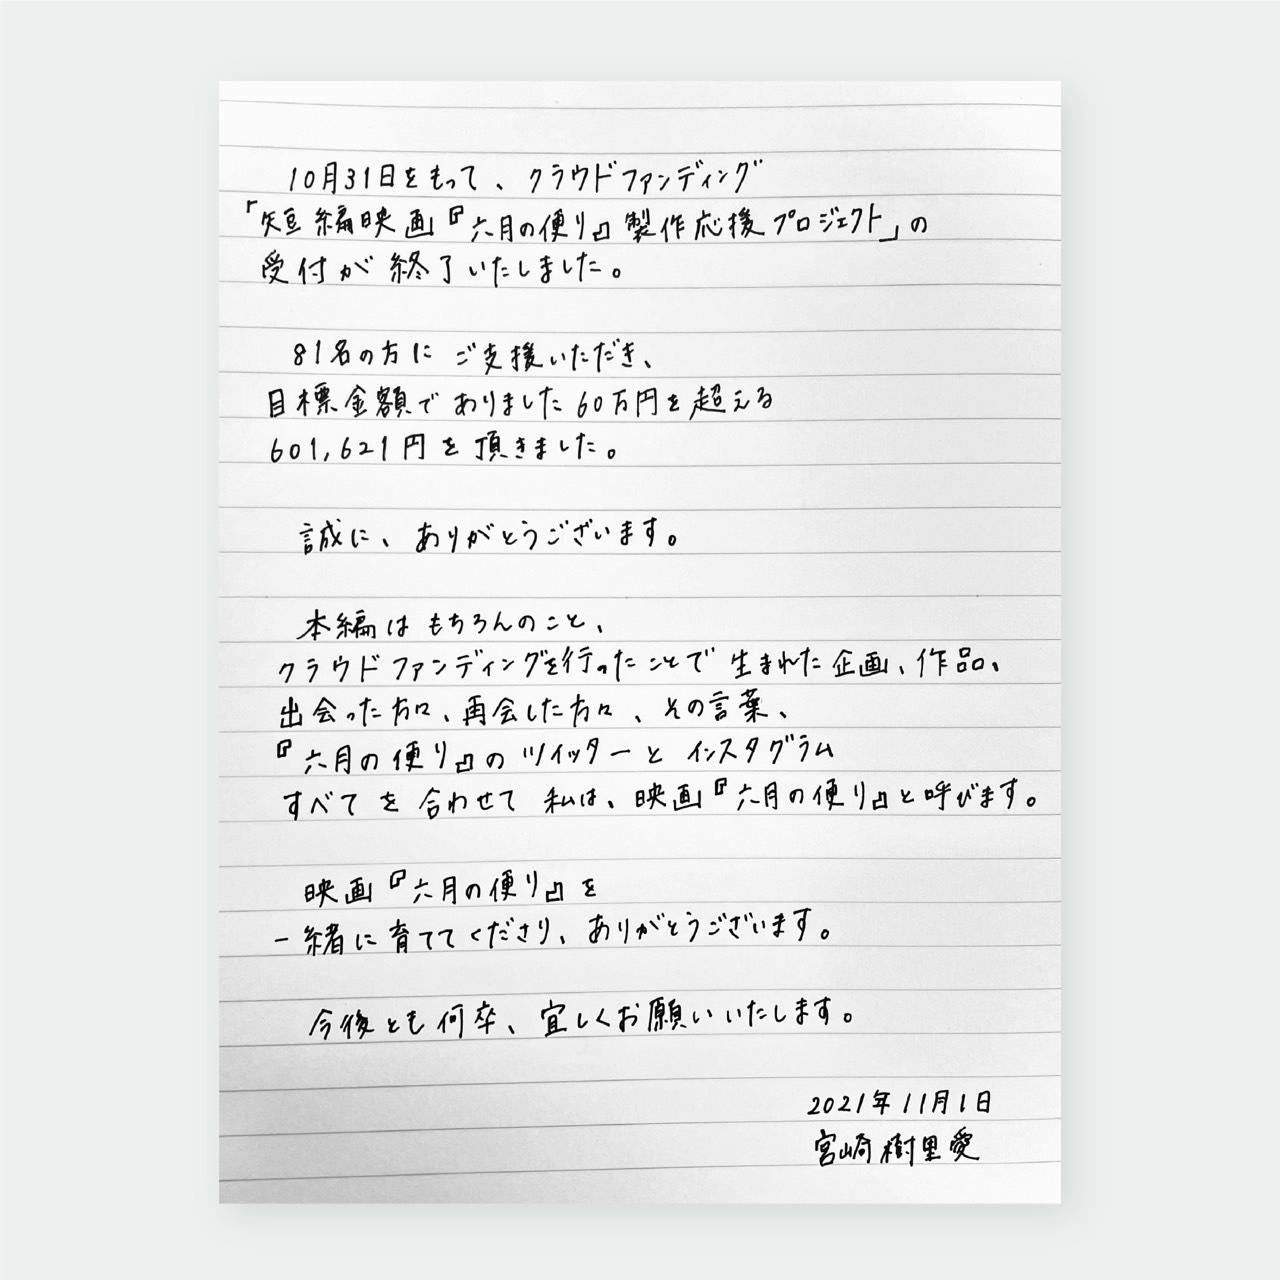 10月31日をもって、クラウドファンディング
「短編映画『六月の便り』製作応援プロジェクト」の
受付が終了いたしました。
81名の方にご支援いただき、
目標金額でありました60万円を超える
601,621円を頂きました。
誠に、ありがとうございます。
本編はもちろんのこと、
クラウドファンディングを行ったことで生まれた企画、作品、
出会った方々、再会した方々、その言葉、
『六月の便り』のツイッターとインスタグラム
すべてを合わせて私は、映画『六月の便り』と呼びます。
映画『六月の便り』を
一緒に育ててくださり、ありがとうございます。
今後とも何卒、宜しくお願いいたします。
2021年11月1日
宮崎樹里愛